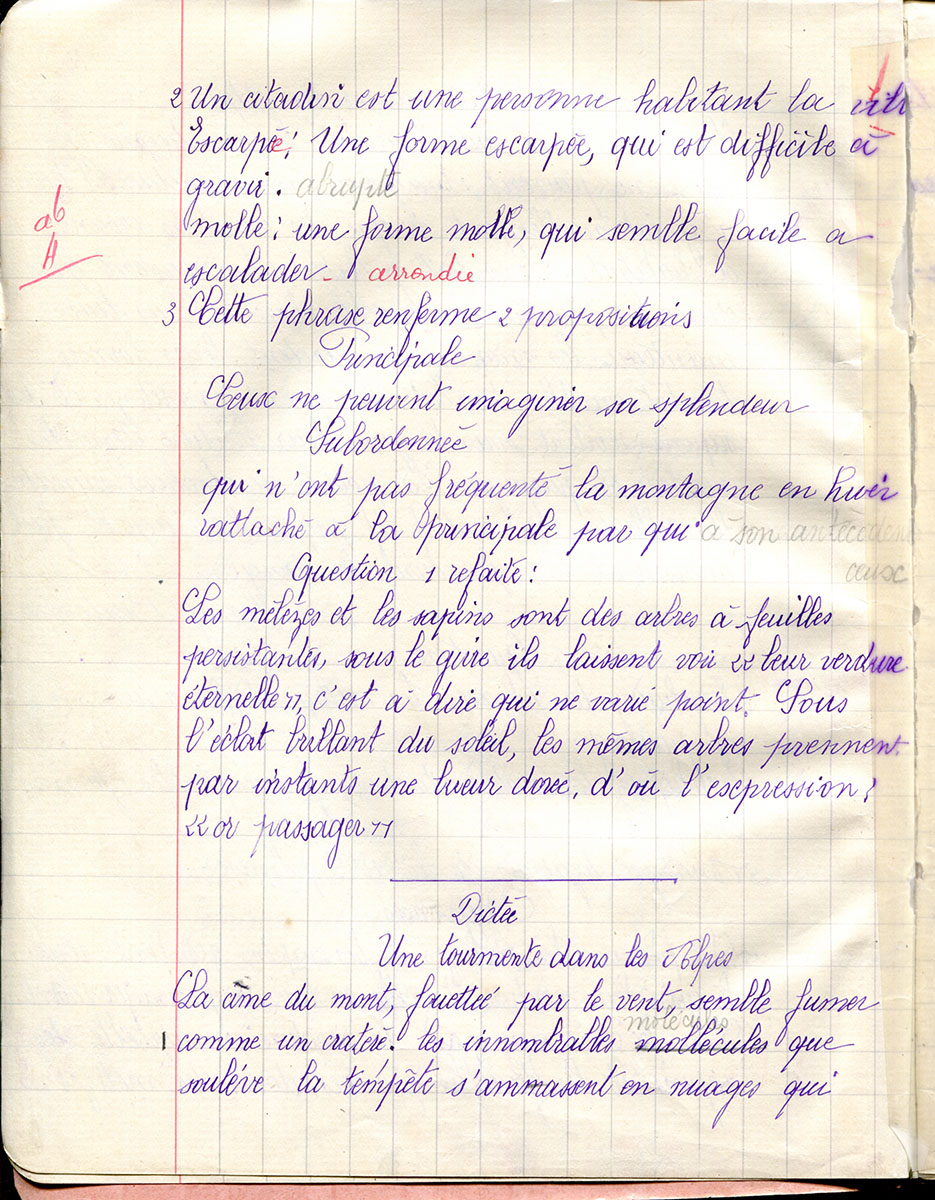 2 Un citadin est une personne habitant la
Escarpée: Une forme escarpée, qui est difficile à
gravir. abrupte
molle: une forme molle, qui semble facile a
escalader - arrondie
3 Cette phrase renferme 2 propositions
Principale
Ceux ne peuvent imaginer sa splendeur
Subordonnée
qui n'ont pas fréquenté la montagne en hiver
rattaché à la principale par qui à son antécédent
ceux
Question 1 refaite:
Les mélèzes et les sapins sont des arbres à feuilles
persistantes, sous le givre ils laissent voir << leur verdure
éternelle >>, c'est à dire qui ne varie point. Sous
l'éclat brillant du soleil, les mêmes arbres prennent
par instants une lueur dorée, d'où l'expression:
<< or passager >>
Dictée
Une tourmente dans les Alpes
La cime du mont, fouettée par le vent, semble fumer
molécules
1 comme un cratère. les innombrables mollécules que
souléve la tempête s'ammassent en nuages qui